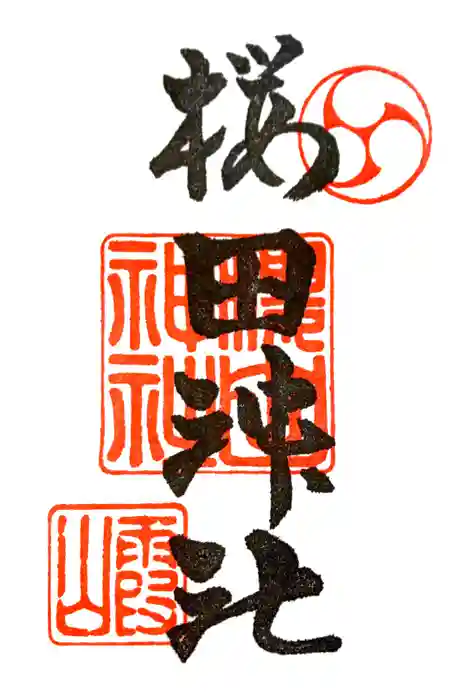 桜田神社
櫻田
神社
霞山